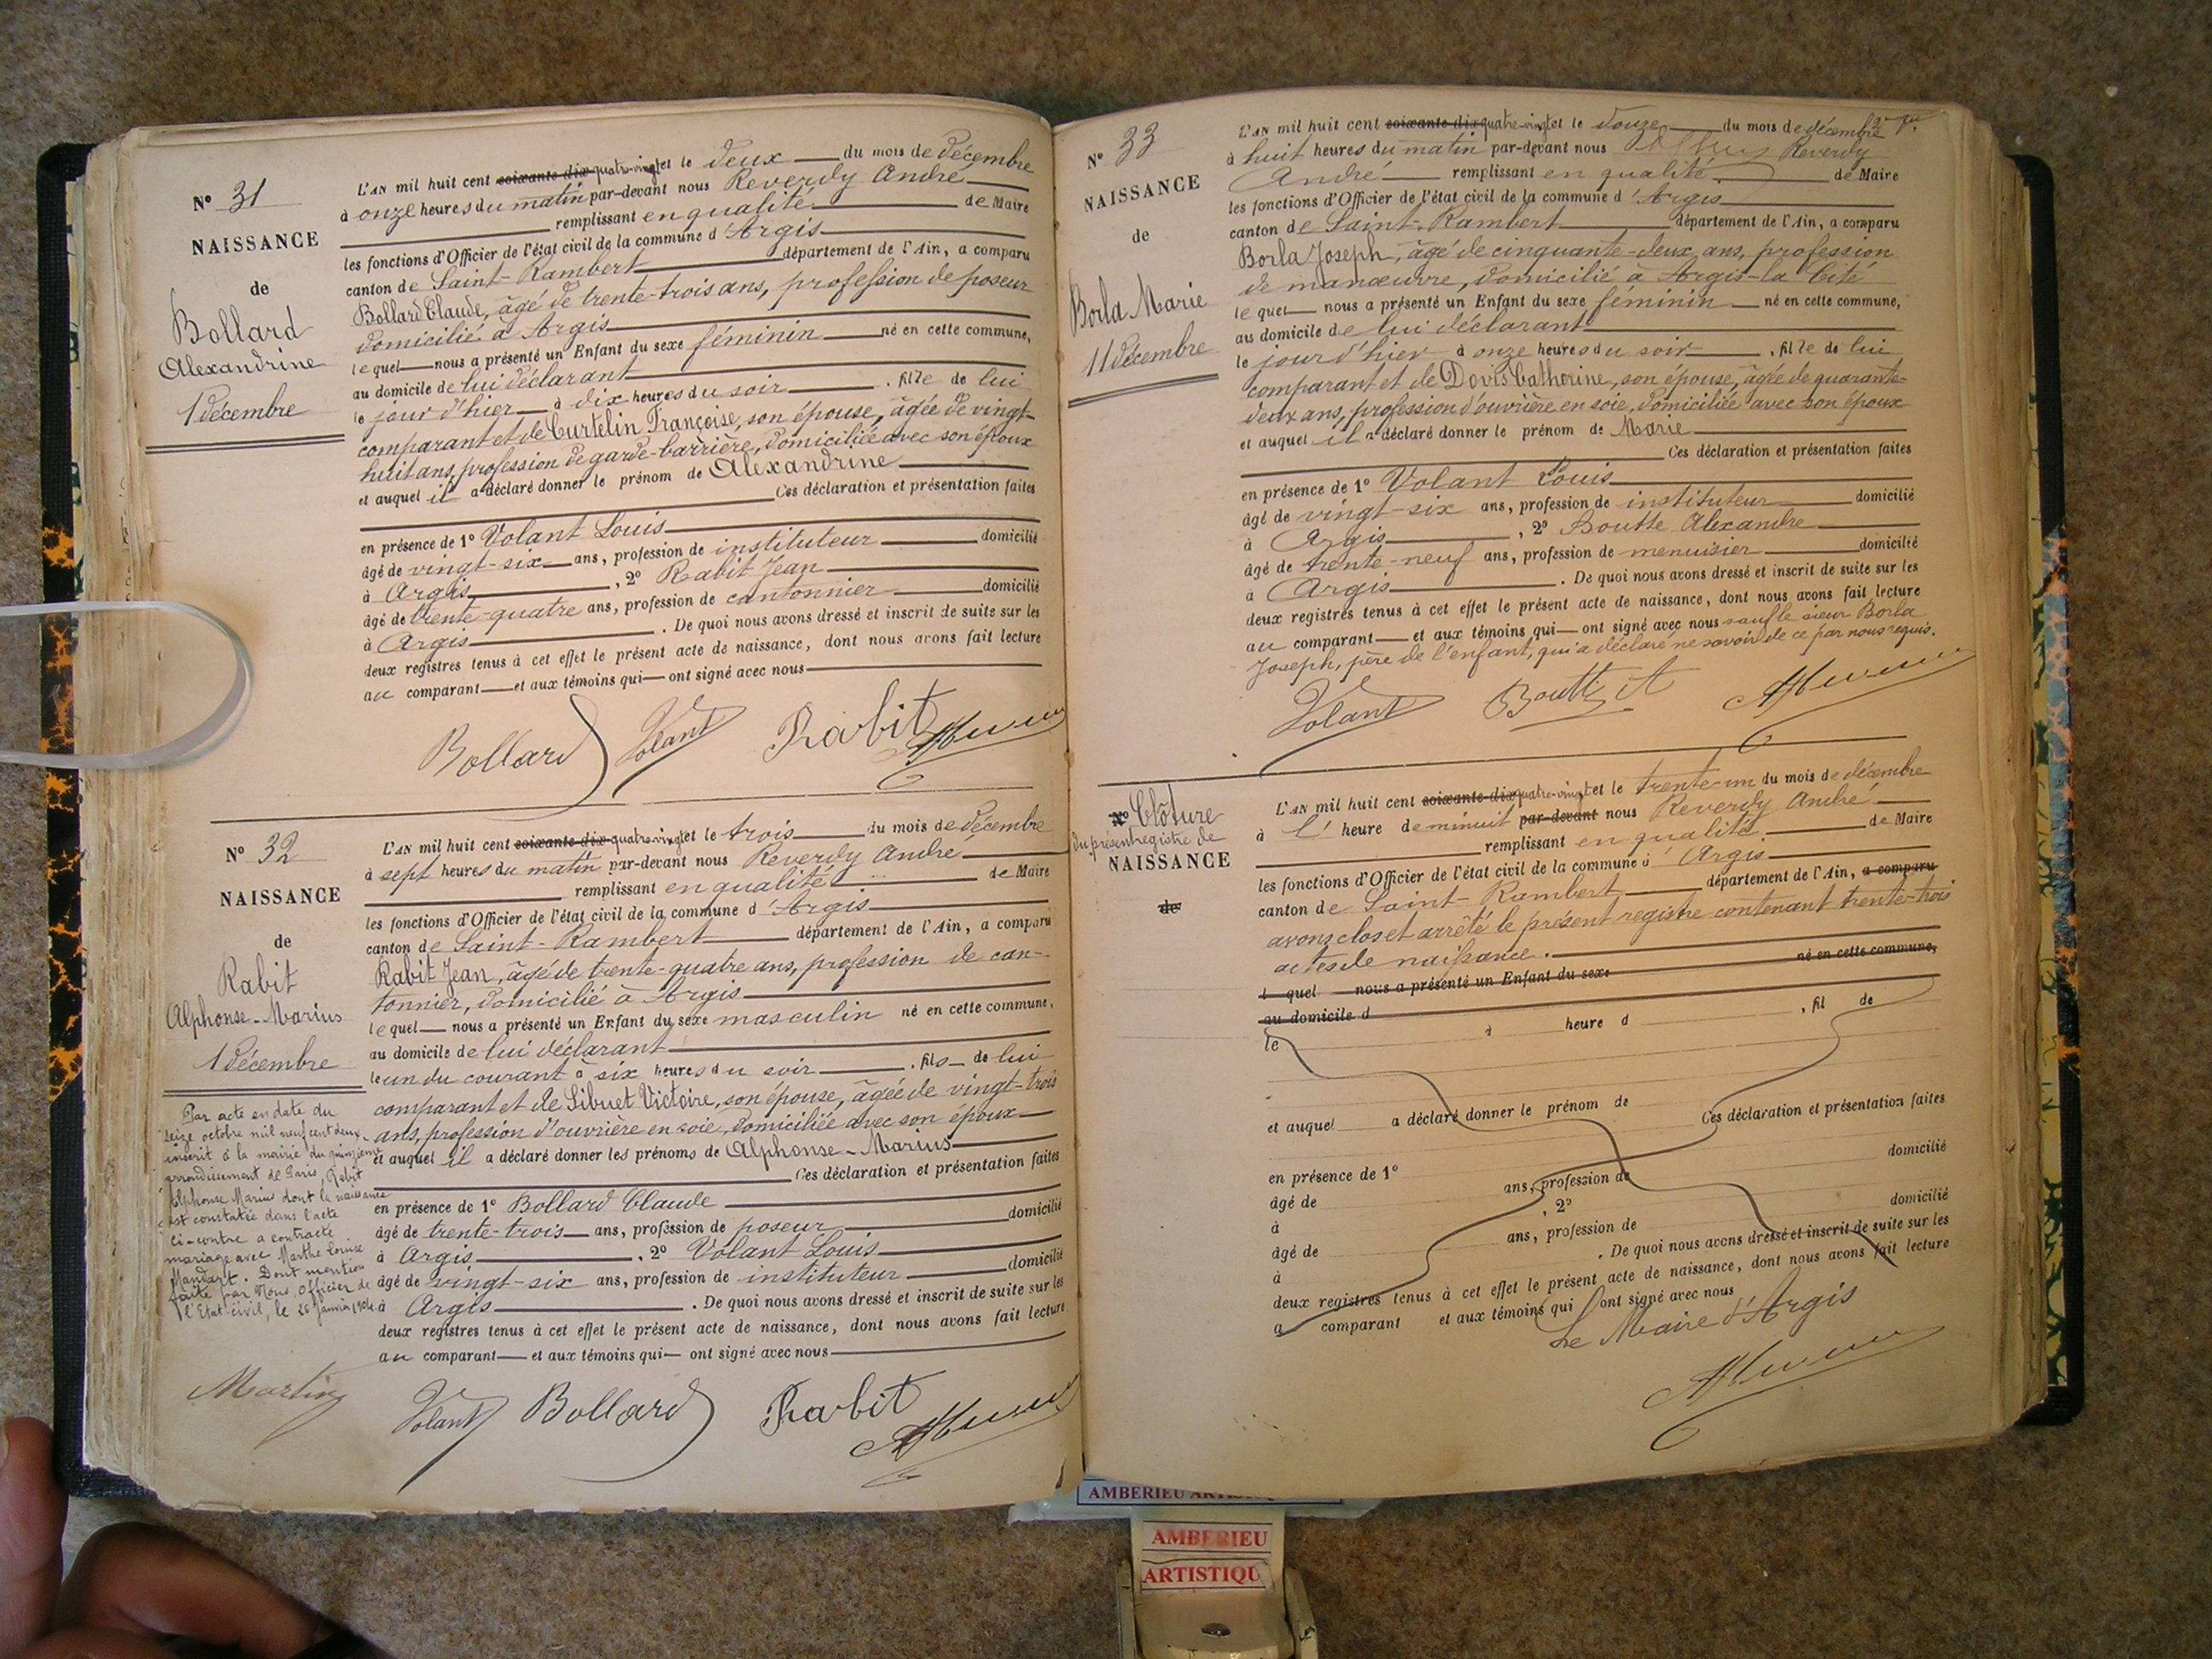 N° 31
NAISSANCE
de
Bollard
Alexandrine
1 décembre
L'AN mil huit cent soixante-dix quatre-vingt et le deux du mois de décembre
à onze heures du matin par-devant nous Reverdy André
remplissant en qualité de Maire
les fonctions d'Officier de l'état civil de la commune d'Argis
canton de Saint-Rambert département de l'Ain, a comparu
Bollard Claude, âgé de trente-trois ans, profession de poseur
domicilié à Argis
lequel nous a présenté un Enfant du sexe féminin né en cette commune,
au domicile de lui déclarant
le jour d'hier à dix heures du soir, fille de lui
comparant et de Curtelin Françoise, son épouse, âgée de vingt-
huit ans, profession de garde-barrière, domiciliée avec son époux
et auquel il a déclaré donner le prénom de Alexandrine
Ces déclaration et présentation faites
en présence de 1° Volant Louis
âgé de vingt-six ans, profession de instituteur domicilié
à Argis, 2° Rabit Jean
âgé de trente-quatre ans, profession de cantonnier domicilié
à Argis. De quoi nous avons dressé et inscrit de suite sur les
deux registres tenus à cet effet le présent acte de naissance, dont nous avons fait lecture
au comparant et aux témoins qui ont signé avec nous
Bollard Volant Rabit
N° 32
NAISSANCE
de
Rabit
Alphonse-Marius
1 décembre
L'AN mil huit cent soixante-dix quatre-vingt et le trois du mois de décembre
à sept heures du matin par-devant nous Reverdy André
remplissant en qualité de Maire
les fonctions d'Officier de l'état civil de la commune d'Argis
canton de Saint-Rambert département de l'Ain, a comparu
Rabit Jean, âgé de trente-quatre ans, profession de can-
tonnier, domicilié à Argis
lequel nous a présenté un Enfant du sexe masculin né en cette commune,
au domicile de lui déclarant
le un du courant à six heures du soir, fils de lui
comparant et de Sibuet Victoire, son épouse, âgée de vingt-trois
ans, profession d'ouvrière en soie, domiciliée avec son époux
et auquel il a déclaré donner les prénoms de Alphonse-Marius
Ces déclaration et présentation faites
en présence de 1° Bollard Claude
âgé de trente-trois ans, profession de poseur domicilié
à Argis, 2° Volant Louis
âgé de vingt-six ans, profession de instituteur domicilié
à Argis. De quoi nous avons dressé et inscrit de suite sur les
deux registres tenus à cet effet le présent acte de naissance, dont nous avons fait lecture
au comparant et aux témoins qui ont signé avec nous
Par acte en date du
seize octobre mil neuf cent deux
inscrit à la mairie du quinzième
arrondissement de Paris, Rabit
Alphonse Marius dont la naissance
est constatée dans l'acte
ci-contre a contracté
mariage avec Marthe Louise
Mandart. Dont mention
faite par Nous, Officier de
l'Etat-civil, le 26 Janvier 1904.
Martin
Volant Bollard Rabit
N° 33
NAISSANCE
de
Borla Marie
11 décembre
L'AN mil huit cent soixante-dix quatre-vingt et le douze du mois de décembre
à huit heures du matin par-devant nous Reverdy
André remplissant en qualité de Maire
les fonctions d'Officier de l'état civil de la commune d'Argis
canton de Saint-Rambert département de l'Ain, a comparu
Borla Joseph, âgé de cinquante-deux ans, profession
de manœuvre, domicilié à Argis-la Cité
lequel nous a présenté un Enfant du sexe féminin né en cette commune,
au domicile de lui déclarant
le jour d'hier à onze heures du soir, fille de lui
comparant et de Dovis Catherine, son épouse, âgée de quarante-
deux ans, profession d'ouvrière en soie, domiciliée avec son époux
et auquel il a déclaré donner le prénom de Marie
Ces déclaration et présentation faites
en présence de 1° Volant Louis
âgé de vingt-six ans, profession de instituteur domicilié
à Argis, 2° Boutte Alexandre
âgé de trente-neuf ans, profession de menuisier domicilié
à Argis. De quoi nous avons dressé et inscrit de suite sur les
deux registres tenus à cet effet le présent acte de naissance, dont nous avons fait lecture
au comparant et aux témoins qui ont signé avec nous sauf le sieur Borla
Joseph, père de l'enfant, qui a déclaré ne savoir de ce par nous requis.
Volant
N° Clôture
du présent registre de
NAISSANCE
de
L'AN mil huit cent soixante-dix quatre-vingt et le trente-un du mois de décembre
à l'heure de minuit par-devant nous Reverdy André
remplissant en qualité de Maire
les fonctions d'Officier de l'état civil de la commune d'Argis
canton de Saint-Rambert département de l'Ain, a comparu
avons clos et arrêté le présent registre contenant trente-trois
actes de naissance.
l quel nous a présenté un Enfant du sexe né en cette commune,
au domicile d
le à heure d, fil de
et auquel a déclaré donner le prénom de Ces déclaration et présentation faites
en présence de 1° domicilié
âgé de ans, profession de
à, 2° domicilié
âgé de ans, profession de
à. De quoi nous avons dressé et inscrit de suite sur les
deux registres tenus à cet effet le présent acte de naissance, dont nous avons fait lecture
a comparant et aux témoins qui ont signé avec nous
Le Maire d'Argis
AMBERIEU
AMBERIEU
ARTISTIQU